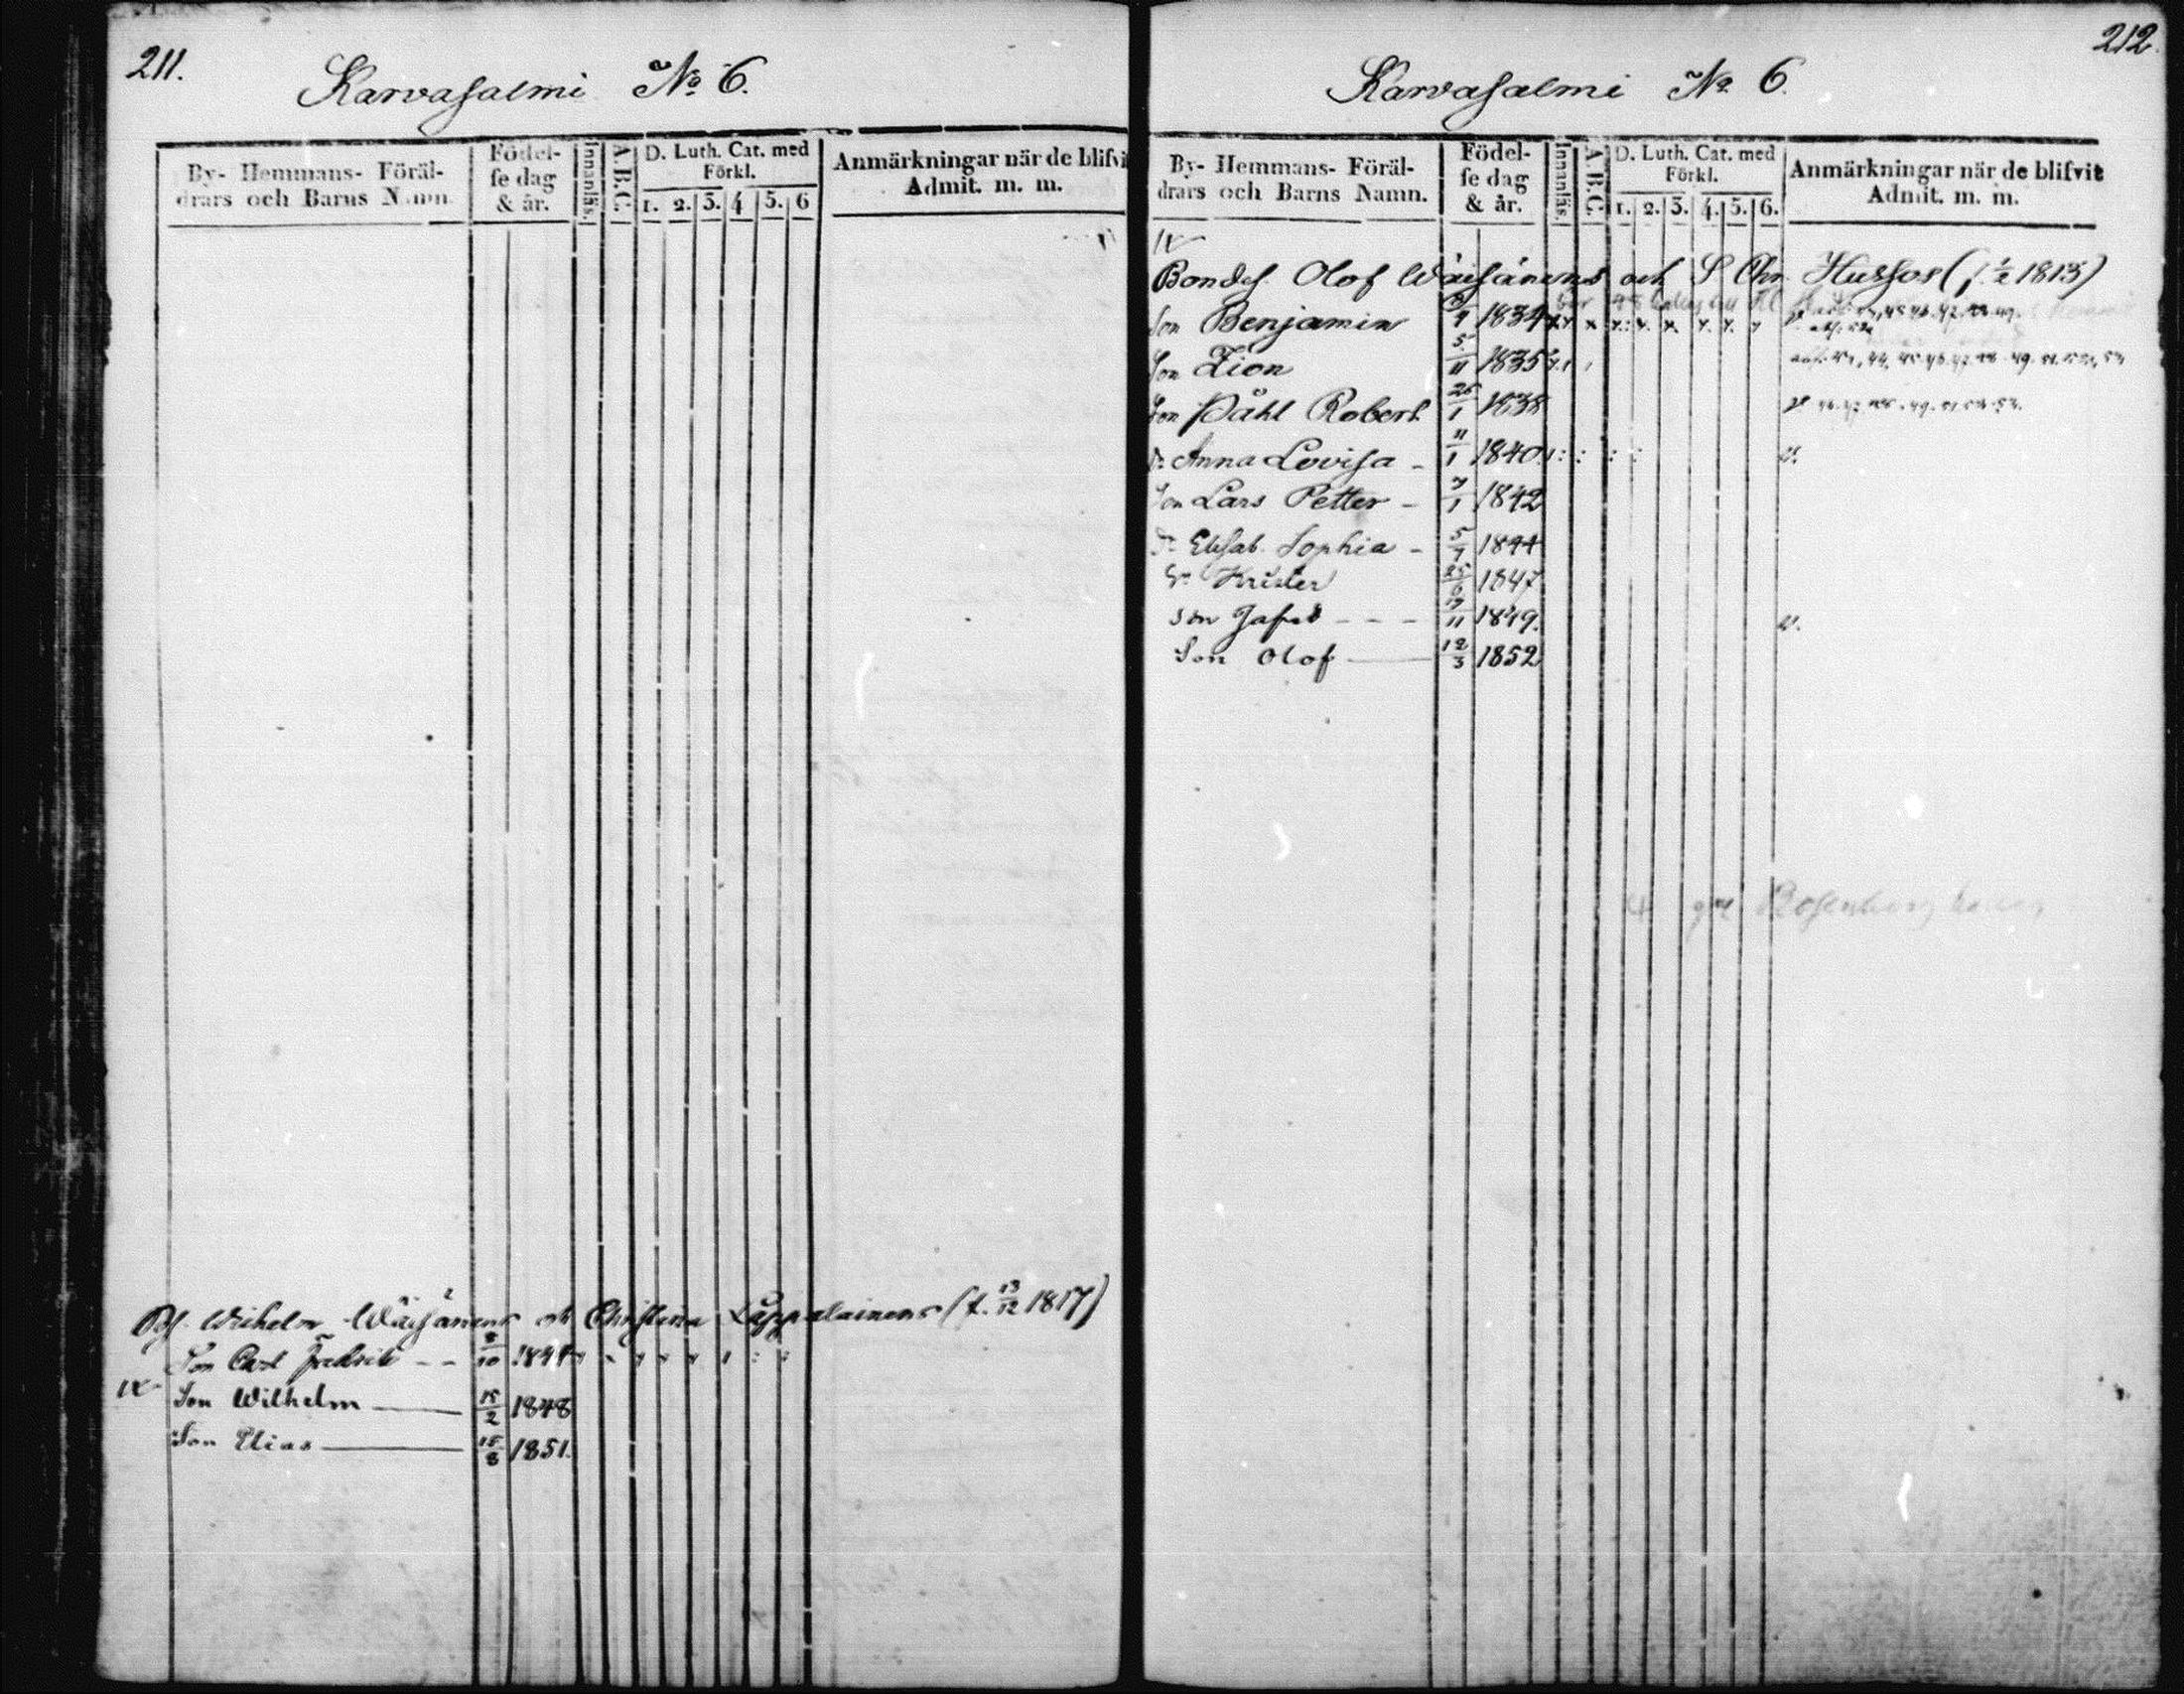 211.
Karvasalmi № 6.
By- Hemmans- Föräl-
drars och Barns Namn.
Födel-
se dag
& år.
Innanläs.
A.B.C.
D. Luth. Cat. med
Förkl.
1. 2. 3. 4 5. 6
Anmärkningar när de blifvi
Admit. m. m.
Bs. Wilhelm Wäisänens och Christina Lappalainens (f. 13/12 1817)
Son Carl Fredrik - - 8/10 1844
Son Wilhelm 15/2 1848
Son Elias 15/8 1851.
212.
Karvasalmi № 6.
By- Hemmans- Föräl-
drars och Barns Namn.
Födel-
se dag
& år.
Innanläs.
A.B.C.
D. Luth. Cat. med
Förkl.
1. 2. 3. 4. 5. 6.
Anmärkningar när de blifvit
Admit. m. m.
Bondes. Olof Wäisänens och S Chr. Hussos (f. 1/2 1813)
Son Benjamin 1834
Son Zion 5/11 1835
Son Påhl Robert 26/1 1838
Dr Anna Lovisa - 11/1 1840
Son Lars Petter - 7/1 1842
Dr Elisab. Sophia - 5/7 1844
Sn Krister 25/6 1847
Son Jafed - - - 17/11 1849.
Son Olof 12/3 1852